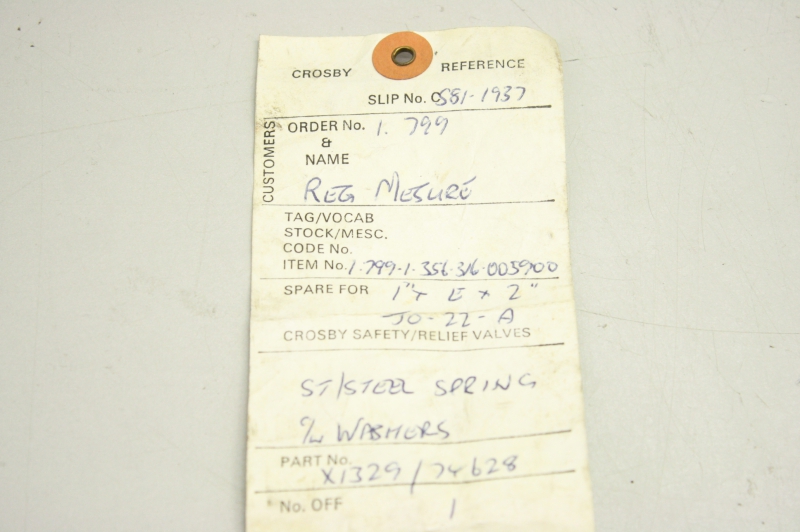 CROSBY REFERENCE
SLIP No. C S81-1937
CUSTOMERS
ORDER No. 1.799
&
NAME
REG MESURE
TAG/VOCAB
STOCK/MESC.
CODE No.
ITEM No. 1.799-1.356.316.005900
SPARE FOR 1" x E x 2"
JO-22-A
CROSBY SAFETY/RELIEF VALVES
ST/STEEL SPRING
C/W WASHERS
PART No. X1329/74628
No. OFF 1